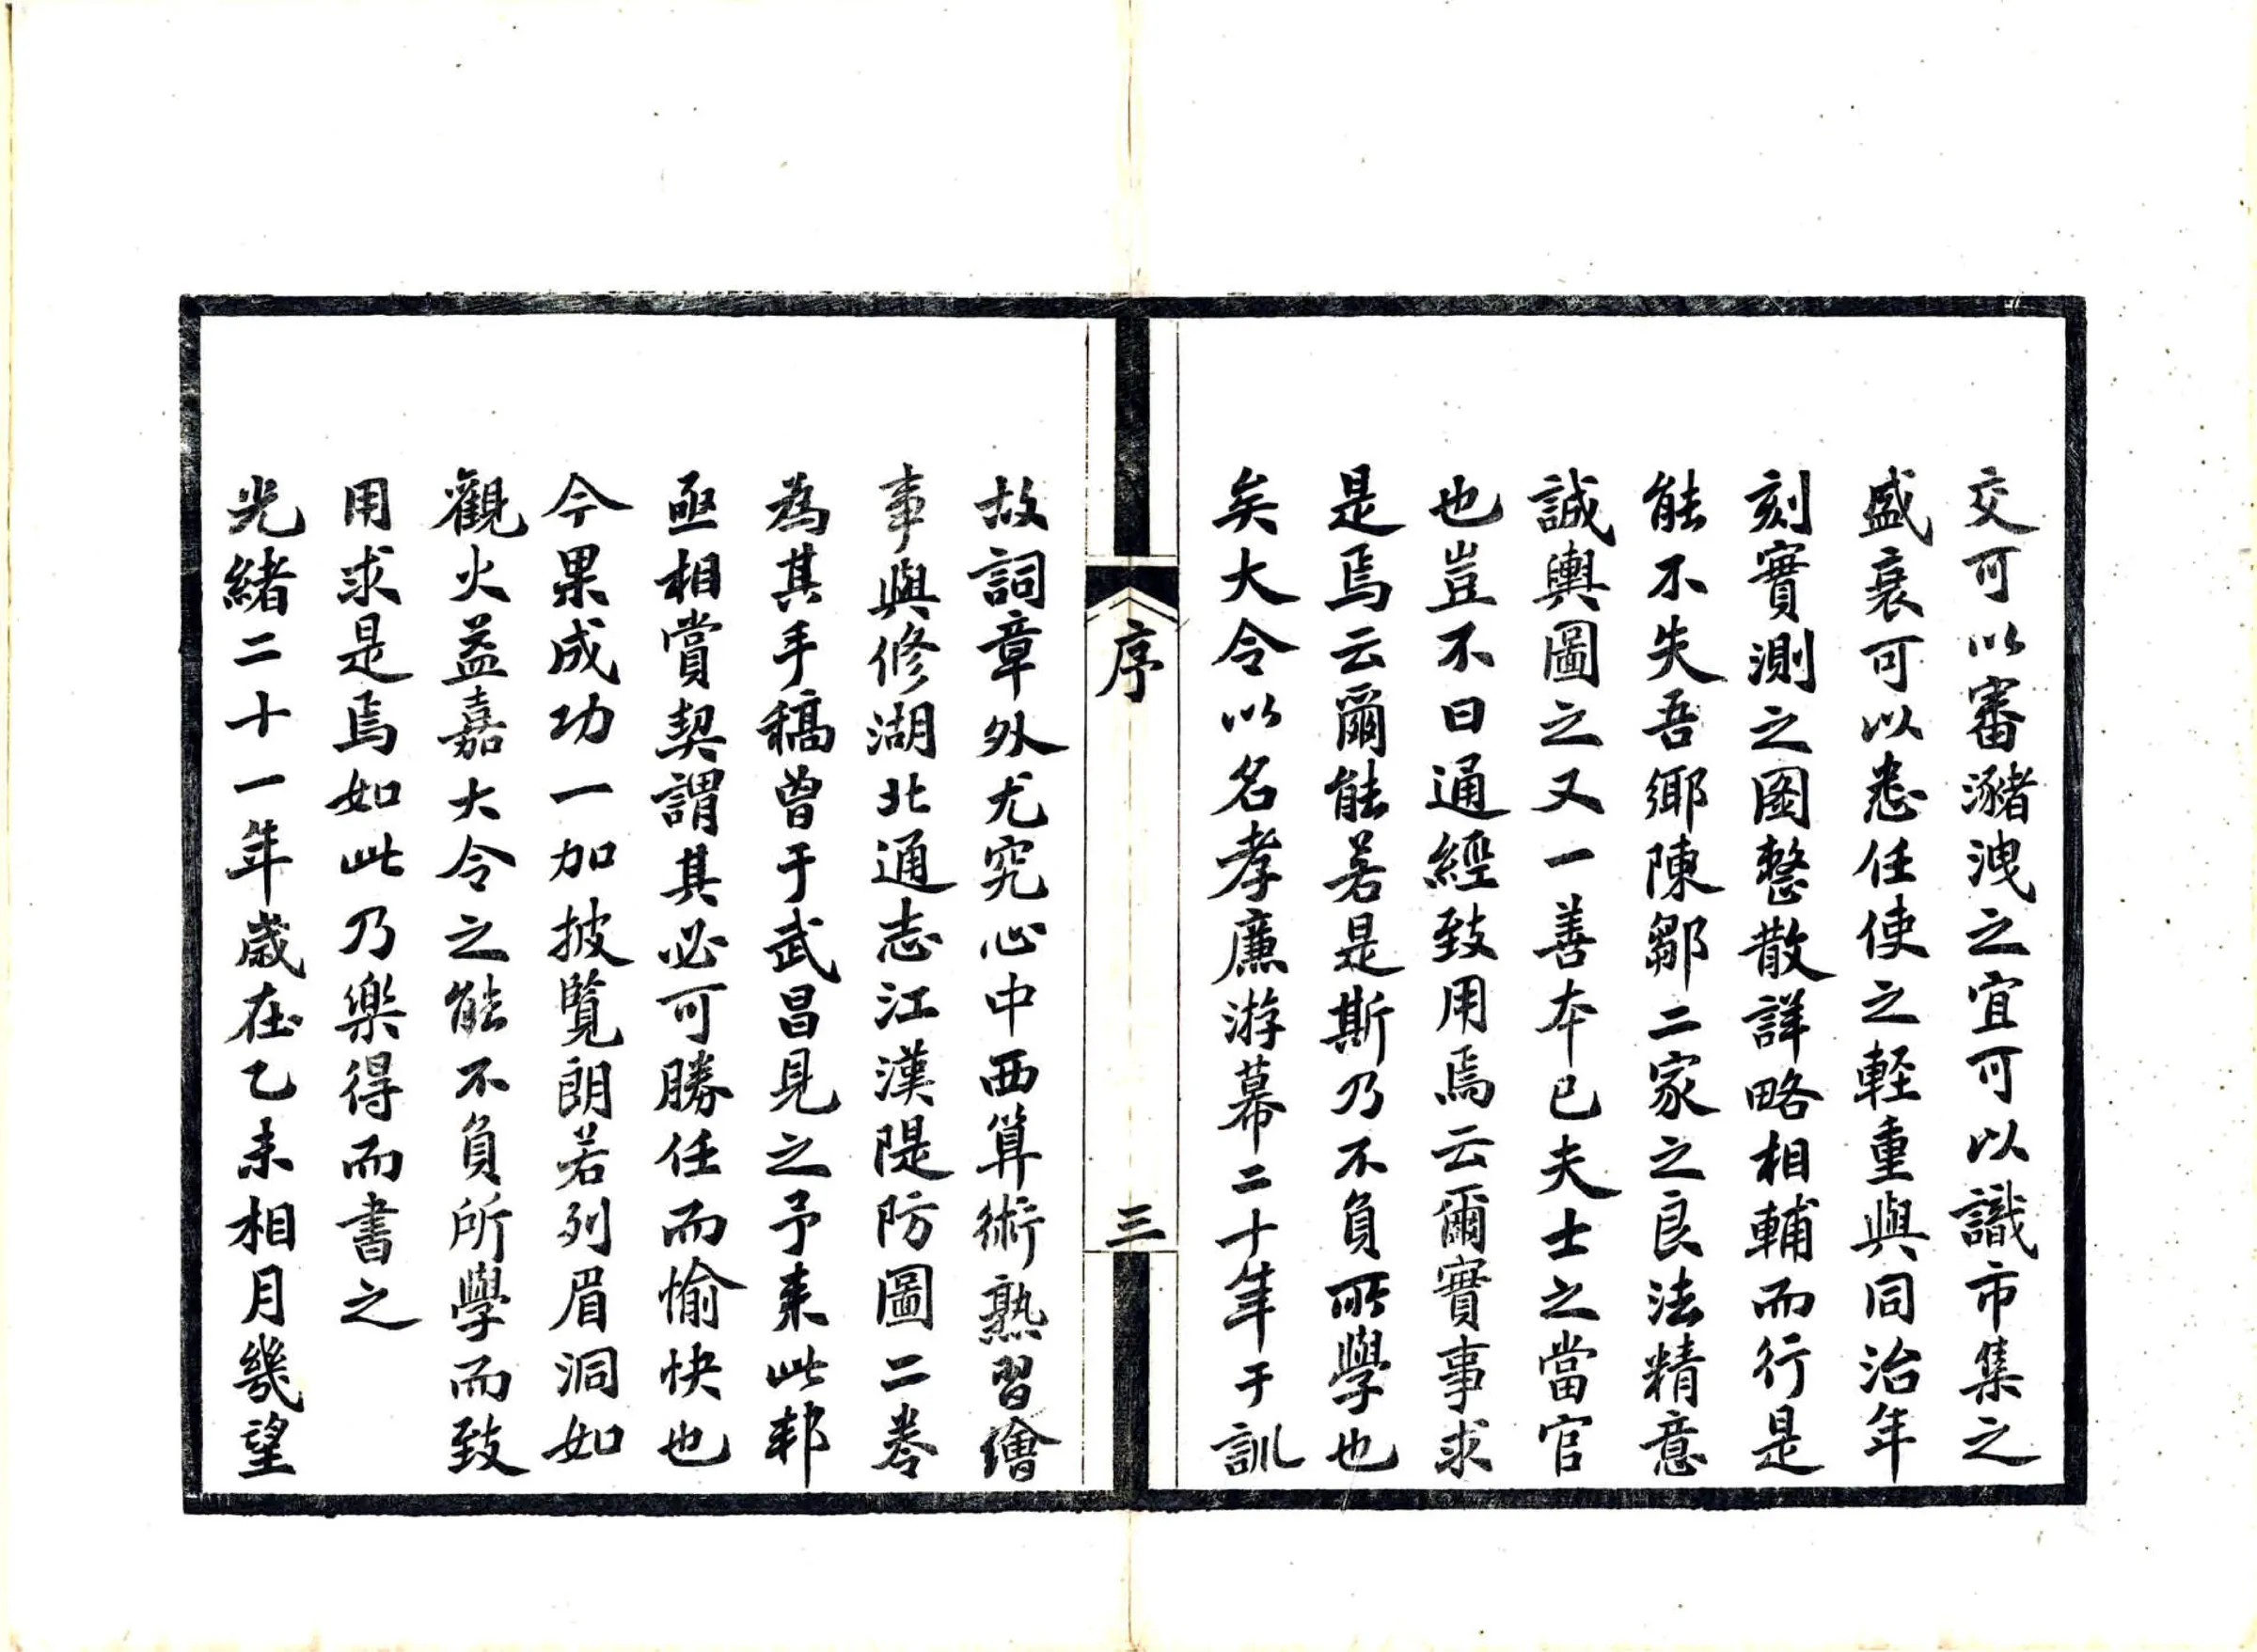 交可以審瀦洩之宜可以識市集之
盛衰可以悉任使之輕重與同治年
刻實測之圖整散詳略相輔而行是
能不失吾鄉陳鄒二家之良法精意
誠輿圖之又一善本已夫士之當官
也豈不曰通經致用焉云爾實事求
是焉云爾能若是斯乃不負所學也
矣大令以名孝廉游幕二十年于訓
序
三
故詞章外尤究心中西算術熟習繪
事與修湖北通志江漢隄防圖二卷
為其手稿曾于武昌見之予來此邦
亟相賞契謂其必可勝任而愉快也
今果成功一加披覽朗若列眉洞如
觀火益嘉大令之能不負所學而致
用求是焉如此乃樂得而書之
光緒二十一年歲在乙未相月幾望